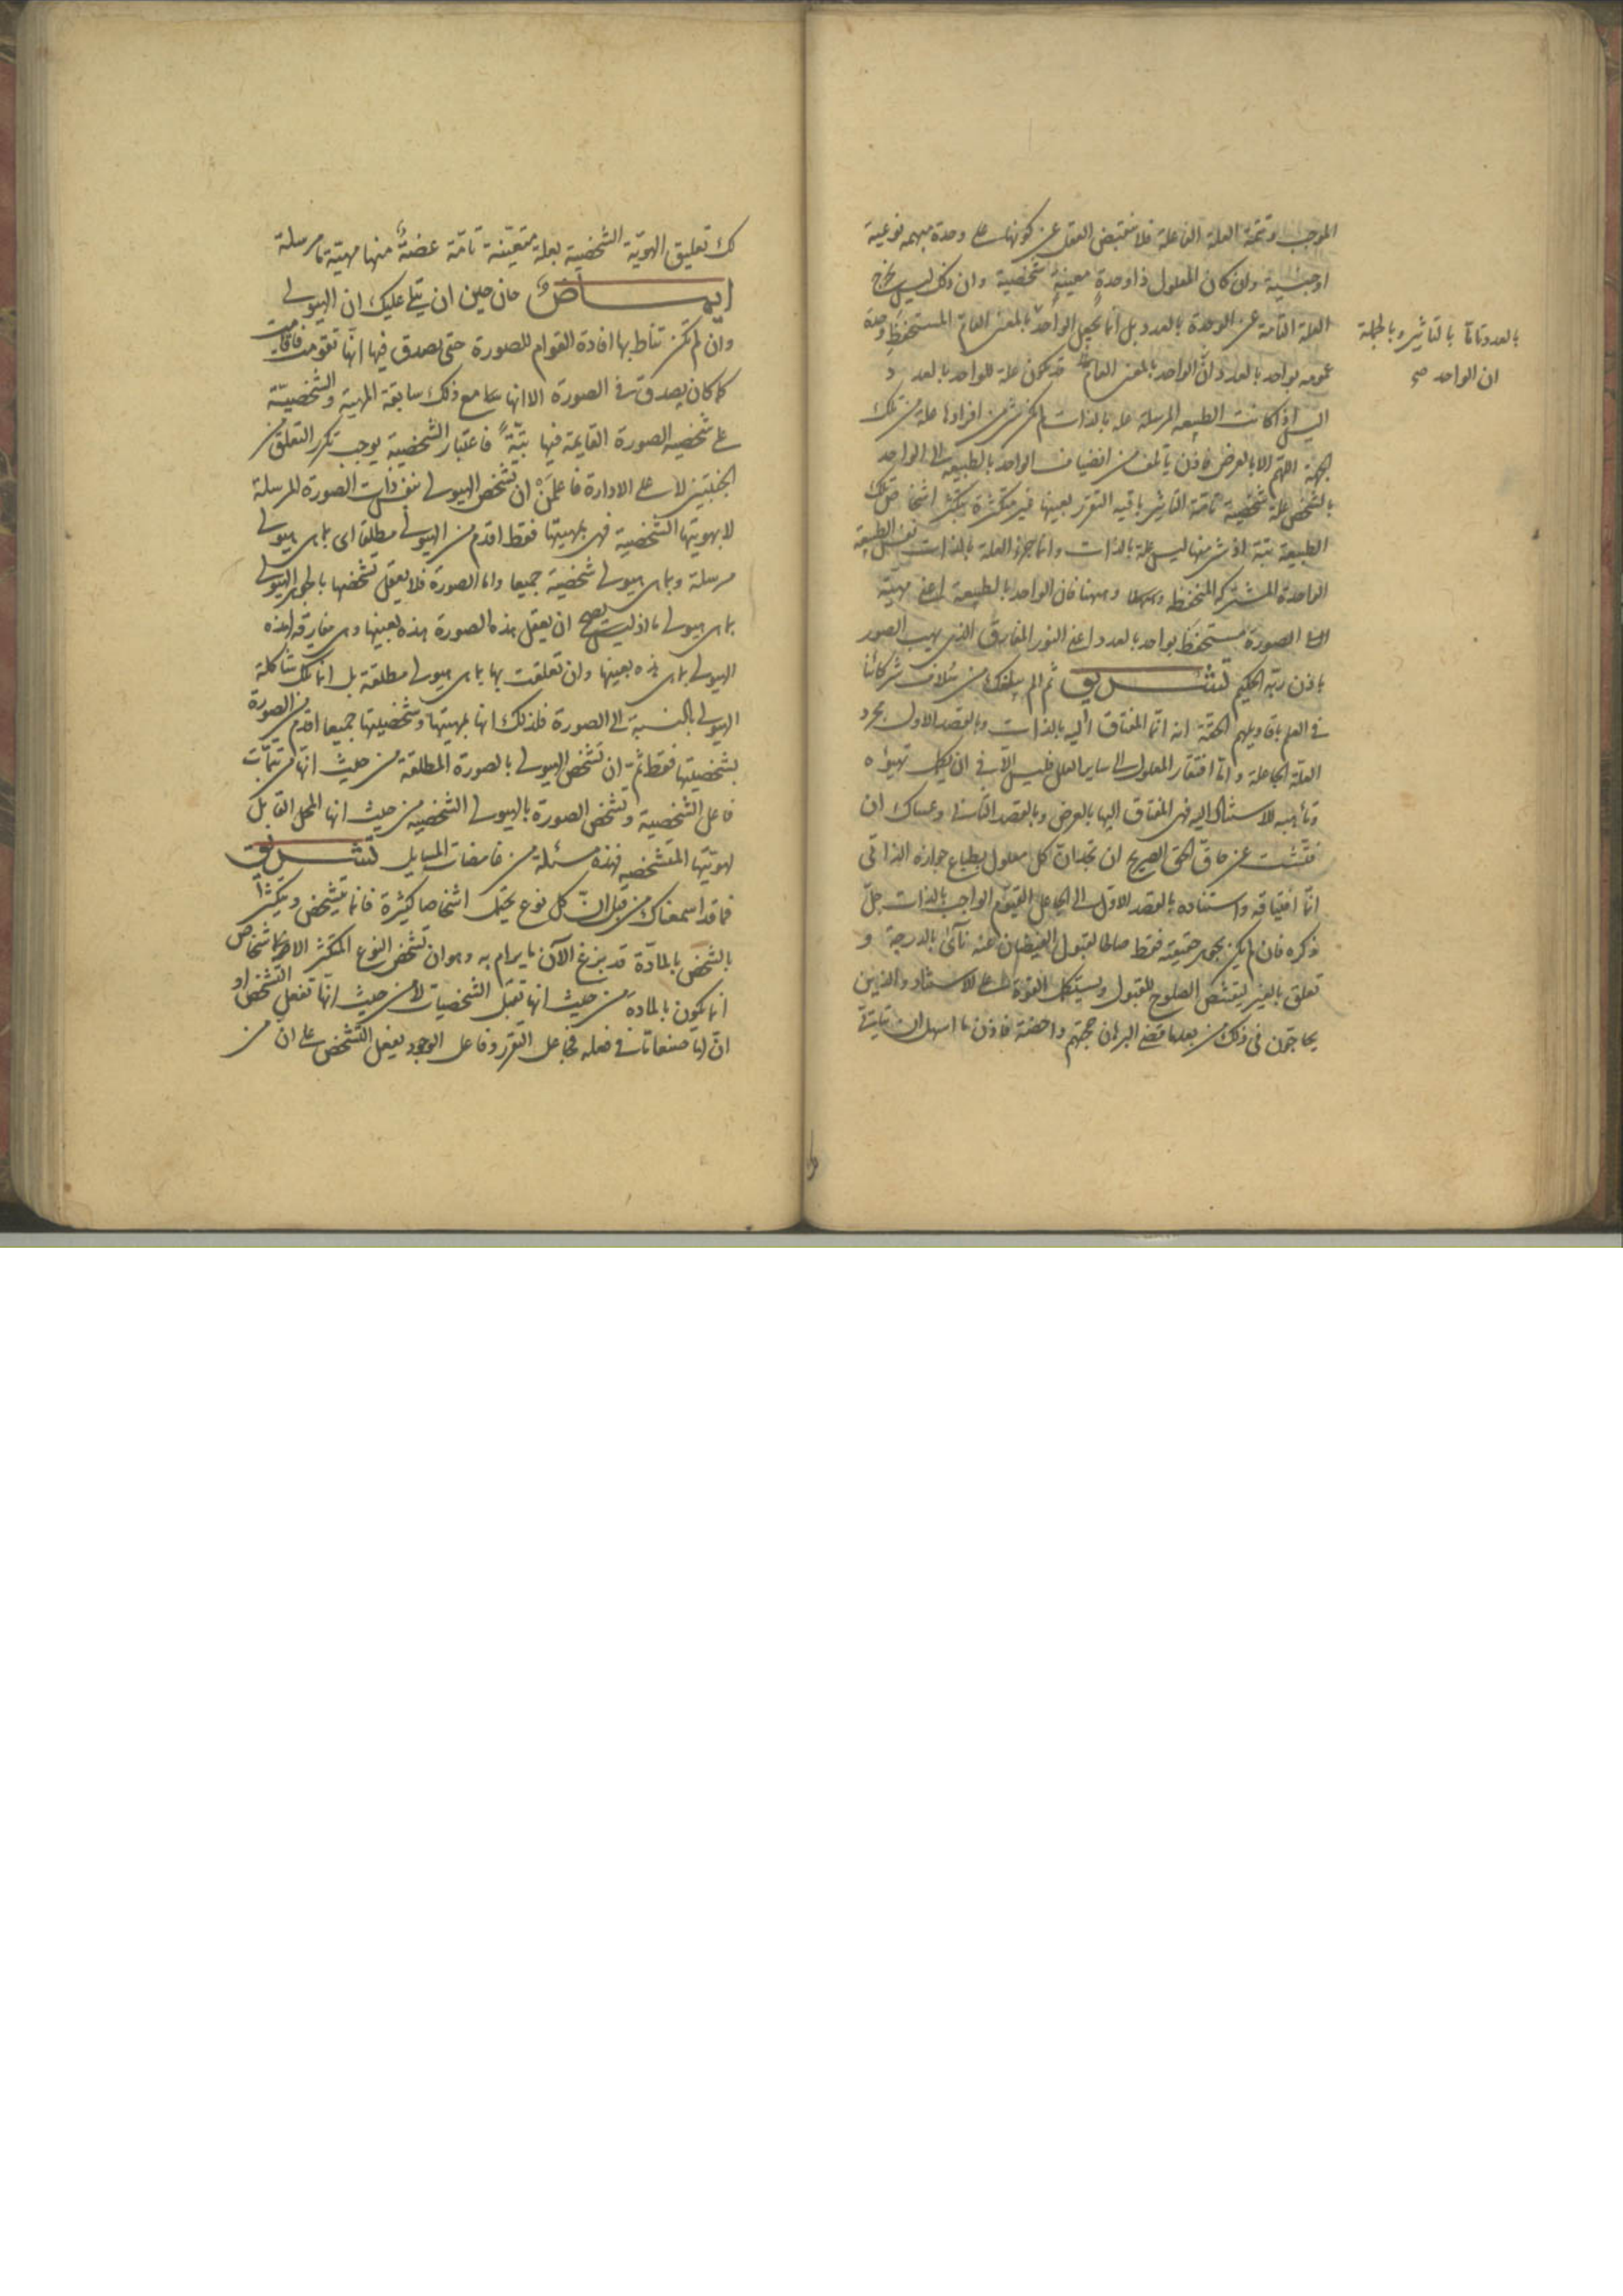 الموجب وتتمة العلة الفاعلة فلا ينقبض العقل عن كونها على وحدة مبهمة نوعية
او جنسية وان كان المعلول ذا وحدة معينة شخصية وان ذلك ليس يخرج
العلة التامة عن الوحدة بالعدد بل انما يجعل الواحد بالمعنى العام المستحفظ وحدة
عمومه بواحد بالعدد وان الواحد بالمعنى العام قد يكون علة للواحد بالعدد
بالعدد تاما بالتاثير وبالجملة
ان الواحد صح
اليس اذا كانت الطبيعة المرسلة علة بالذات لم يكن شئ من افرادها علة من تلك
الجهة اللهم الا بالعرض فاذن يأتلف من انضياف الواحد بالطبيعة الى الواحد
بالشخص علة شخصية تامة التاثير باقية التقرر بعينها غير متكثرة بتكثر اشخاص تلك
الطبيعة بتة اذ شئ منها ليس علة بالذات وانما جزء العلة بالذات نفس الطبيعة
الواحدة المشتركة المنحفظة وههنا فان الواحد بالطبيعة اعنى مهية
الصورة مستحفظ بواحد بالعدد اعنى النور المفارق الذى يهب الصور
باذن ربه الحكيم تشريق ثم الم يبلغك من سلاف شركائنا
فى العلم باقاويلهم الحقة انه انما المفتاق اليه بالذات وبالقصد الاول مجرد
العلة الجاعلة وانما افتقار المعلول الى ساير العلل فليس الا فى ان يكمل تهيؤه
وتأهبه للاستناد اليه فهى المفتاق اليها بالعرض وبالقصد الثانى وعساك ان
فتشت عن حاق الحق الصريح ان تجد ان كل معلول بطباع جوازه الذاتى
انما افتياقه واستناده بالقصد الاول الى الجاعل القيوم الواجب بالذات جل
ذكره فان لم يكن بجوهر حقيقته فقط صالحا لقبول الفيضان عنه نأى بالدرجة و
تعلق بالغير ليتشخص الصلوح للقبول ويستكمل القوة على الاستناد والذين
يحاجون فى ذلك من بعد ما قضى البرهان حجتهم داحضة فاذن ما اسهل ان يتأتى
لك تعليق الهوية الشخصية بعلة متعينة تامة عضة منها مهية ما مرسلة
ايماض حان حين ان يتلى عليك ان الهيولى
وان لم تكن تناط بها افادة القوام للصورة حتى يصدق فيها انها تقومت فاقامت
كما كان يصدق فى الصورة الا انها مع ذلك سابقة المهية والشخصية
على شخصية الصورة القايمة فيها بتة فاعتبار الشخصية يوجب تكرر التعلق من
الجنبتين لا على الادارة فاعلمن ان تشخص الهيولى بنفس ذات الصورة المرسلة
لا بهويتها الشخصية فهى بمهيتها فقط اقدم من الهيولى مطلقا اى بما هى هيولى
مرسلة وبما هى هيولى شخصية جميعا واما الصورة فلا يعقل تشخصها بالهيولى
بما هى هيولى ما اذ ليس يصح ان يعقل هذه الصورة هذه بعينها وهى مفارقة لهذه
الهيولى بما هى هذه بعينها وان تعلقت بها بما هى هيولى مطلقة بل انما تلك شاكلة
الهيولى بالنسبة الى الصورة فلذلك انها بمهيتها وشخصيتها جميعا اقدم من الصورة
بشخصيتها فقط ثم ان تشخص الهيولى بالصورة المطلقة من حيث انها من تتمات
فاعل الشخصية وتشخص الصورة بالهيولى الشخصية من حيث انها المحل القابل
لهويتها المتشخصة فهذه مسئلة من غامضات المسايل تشريق
فما قد اسمعناك من قبل ان كل نوع يحتمل اشخاصا كثيرة فانما يتشخص ويتكثر
بالشخص بالمادة قد بزغ الآن ما يرام به وهو ان تشخص النوع المتكثر الاشخاص
انما يكون بالمادة من حيث انها تقبل الشخصيات لا من حيث انها تفعل التشخص او
ان لها صنعا ما فى فعله فجاعل التقرر وفاعل الوجود يفعل التشخص على ان من